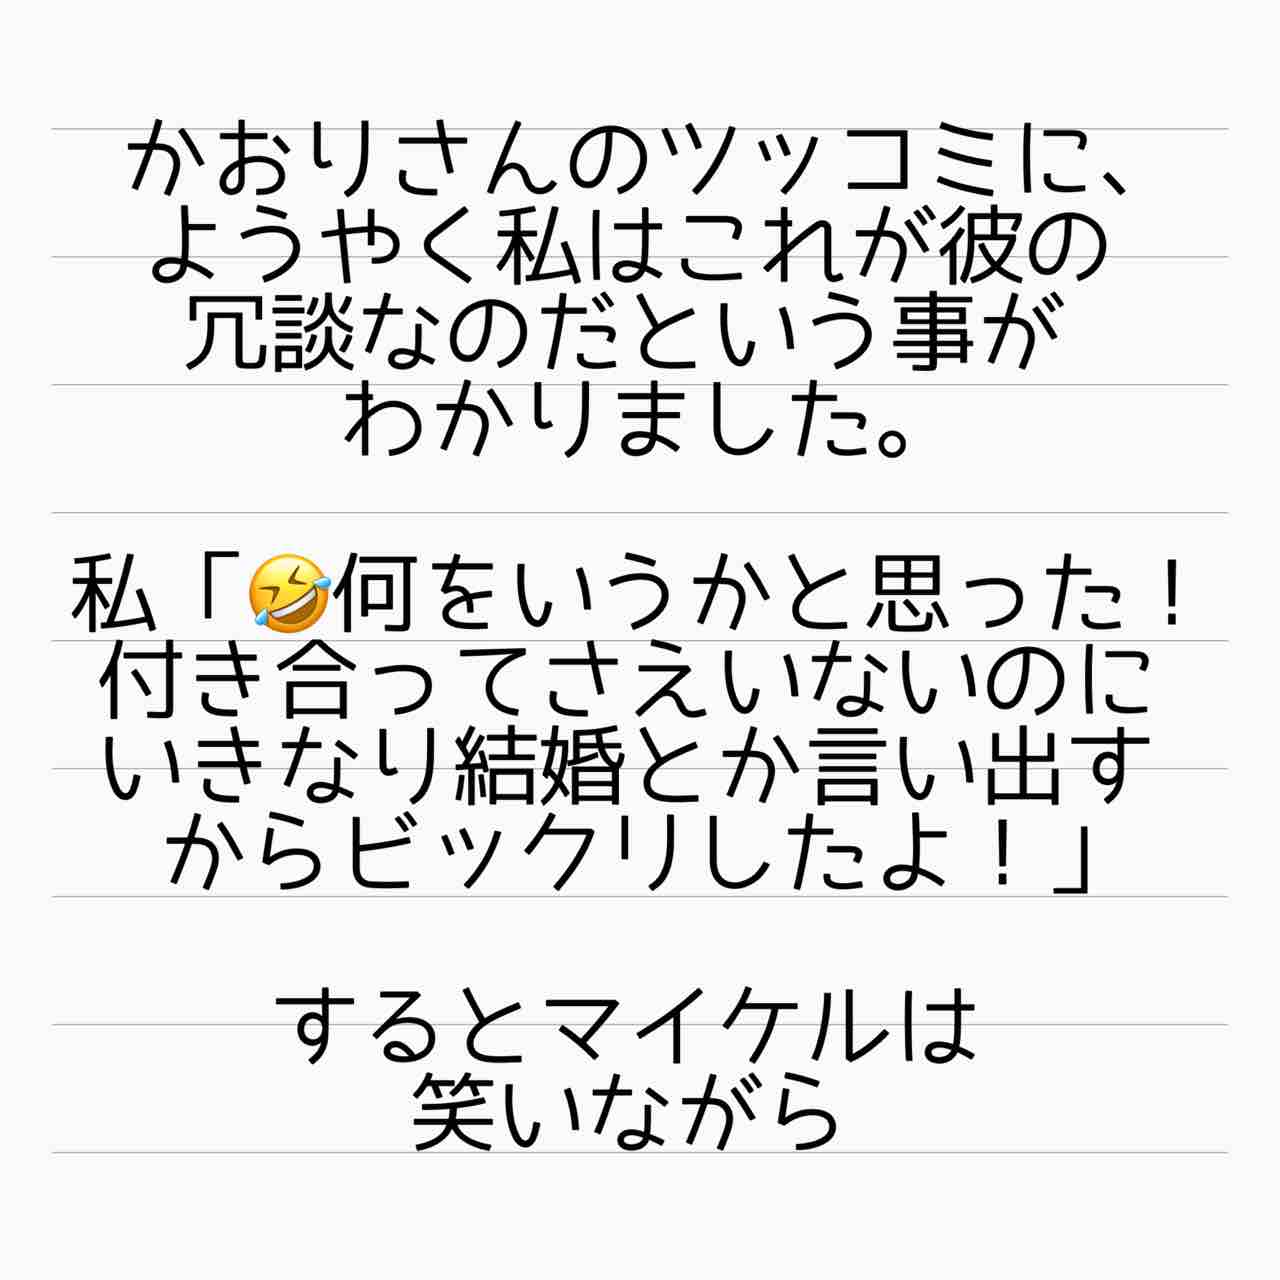 かおりさんのツッコミに、
ようやく私はこれが彼の
冗談なのだという事が
わかりました。
私「🤣何をいうかと思った！
付き合ってさえいないのに
いきなり結婚とか言い出す
からビックリしたよ！」
するとマイケルは
笑いながら